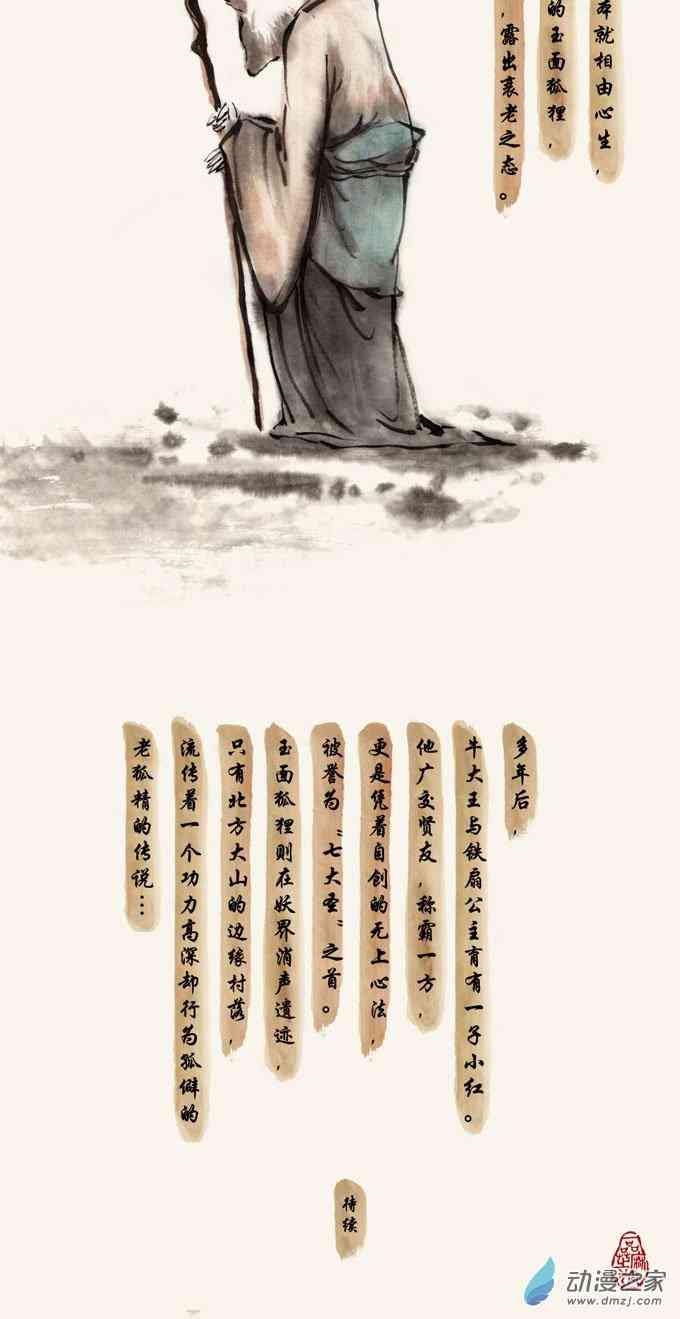 本就相由心生，
的玉面狐狸，
，露出衰老之态。
多年后，
牛大王与铁扇公主育有一子小红。
他广交贤友，称霸一方，
更是凭着自创的无上心法，
被誉为“七大圣”之首。
玉面狐狸则在妖界消声遗迹，
只有北方大山的边缘村落，
流传着一个功力高深却行为孤僻的
老狐精的传说…
待续
动漫之家
www.dmzj.com